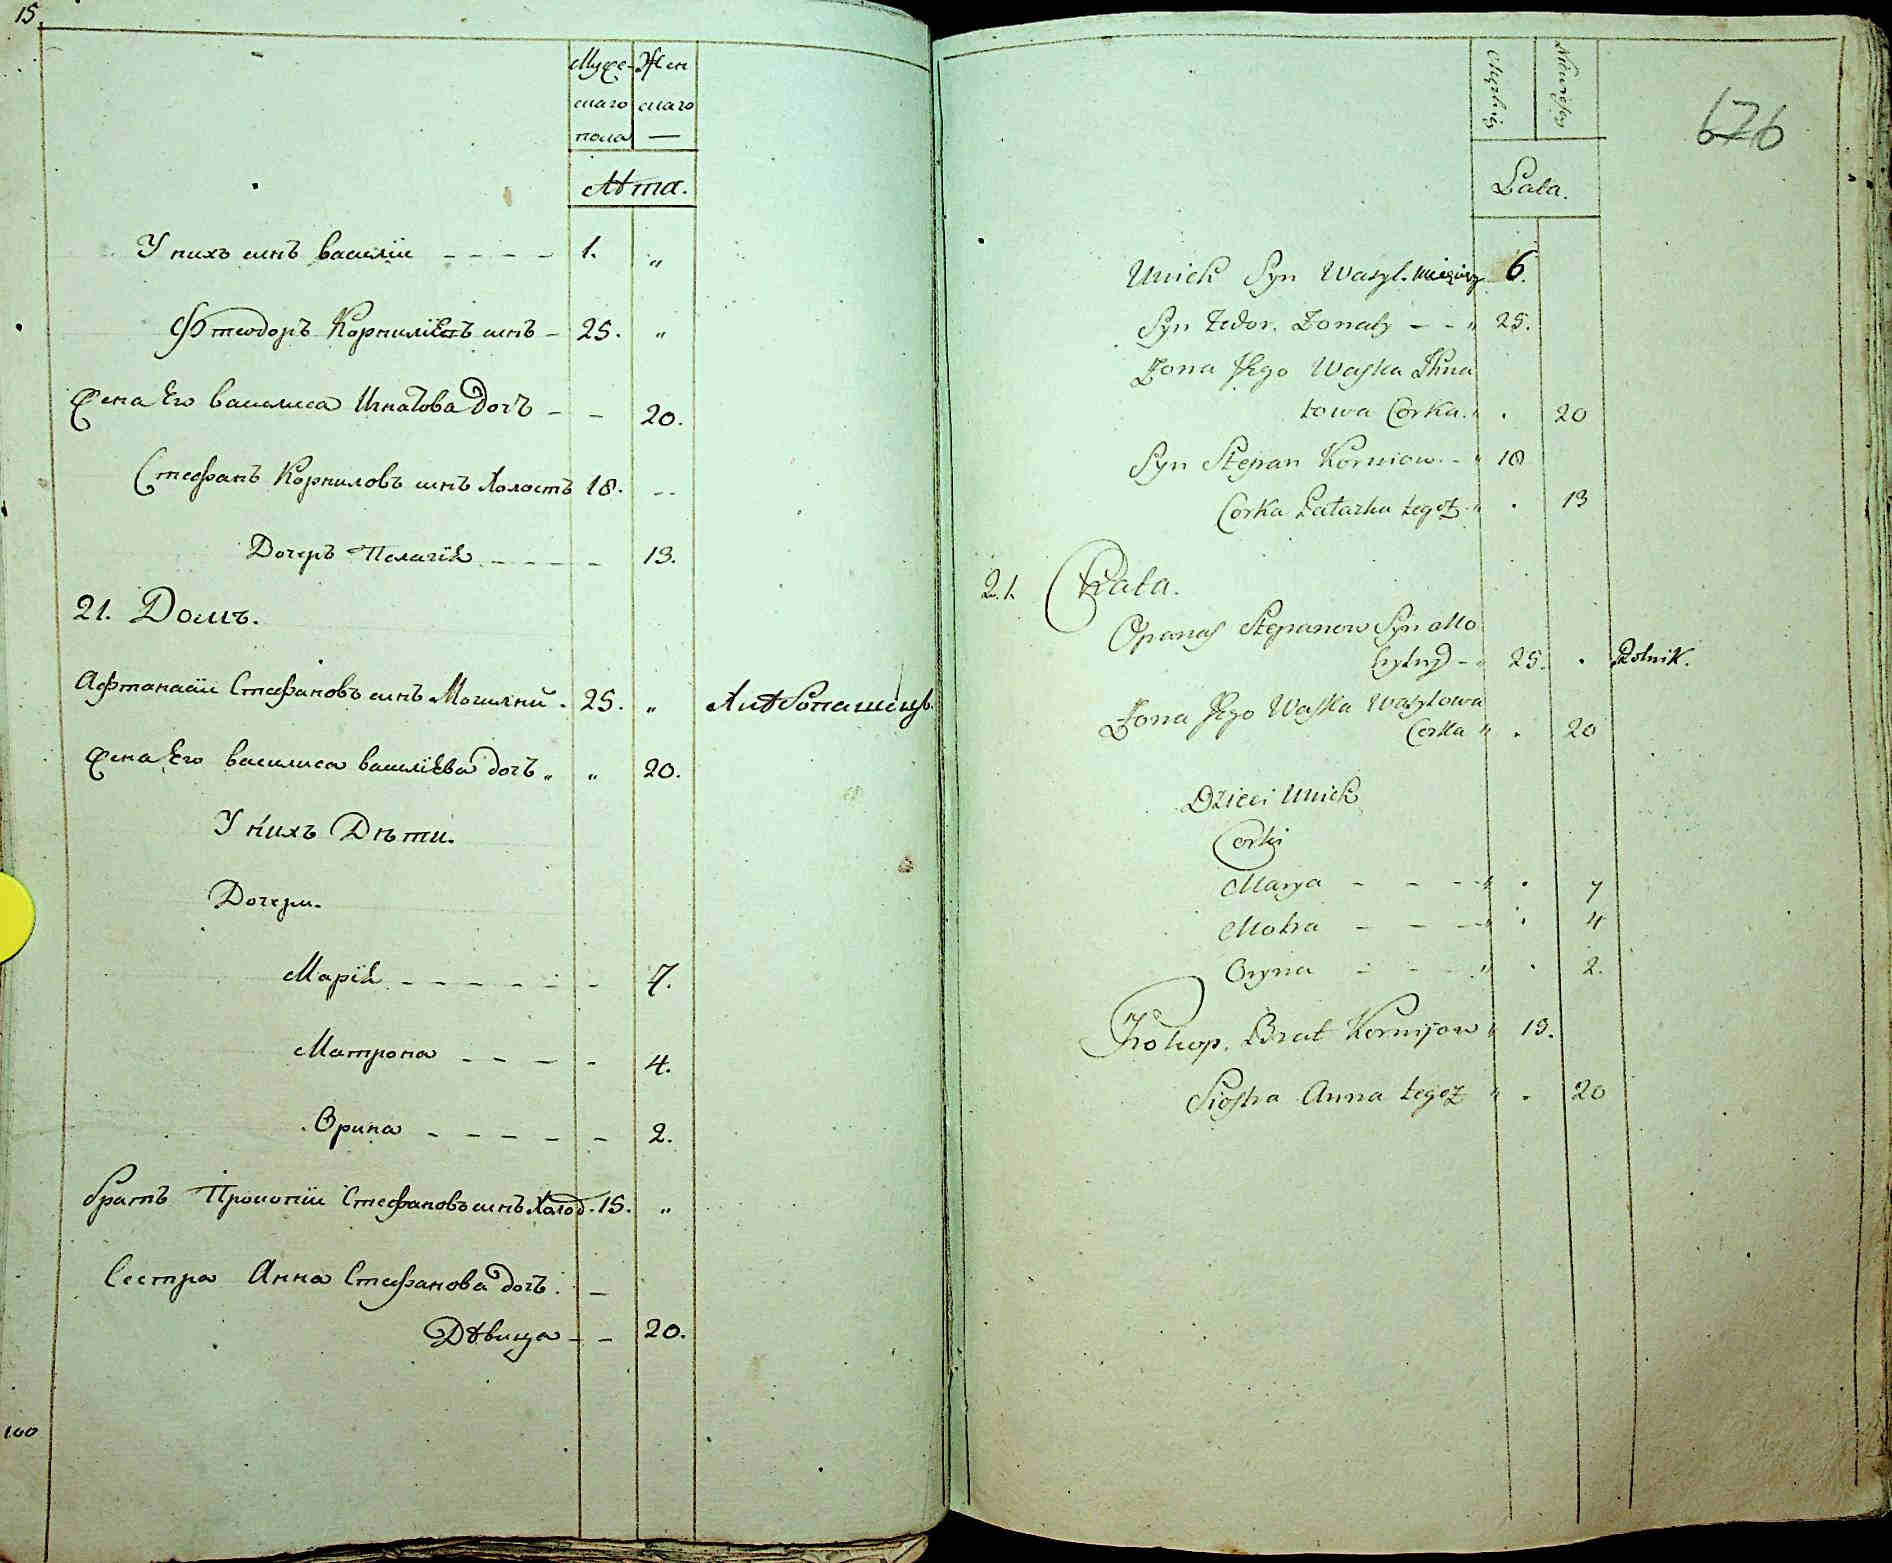 15.
Муже- Жен
скаго скаго
пола —
Лѣта.
У нихъ синъ василій - - - - 1. „
Фтеодоръ Корниліевъ синъ - 25. „
Жена Его василиса Игнатова дочъ - - 20.
Стефанъ Корниловъ синъ Холостъ 18. --
Дочеръ Пелагія - - - - 13.
21. Домъ.
Афтанасій Стефановъ синъ Могилній - 25. „ Хлѣбопашецъ
Жена Его василиса василіева дочъ „ „ 20.
У нихъ Дѣти.
Дочери.
Марія - - - - - - 7.
Матрона - - - - - 4.
Орина - - - - - 2.
братъ Прокопій Стефановъ синъ Холос. 15. „
Сестра Анна Стефанова дочъ. -
Дѣвица - - 20.
100
626
Męzkiéy
Lata.
Unich Syn Wasyl. miesięcy 6.
Syn Fedor. Żonaty - - „ 25.
Żona Jego Waska Ihna
towa Corka. „ . 20
Syn Stepan Korniow - „ 18
Corka Palazka tegoż - „ . 13
21. Chata.
Opanas Stepanow Syn Mo
hylny - „ 25. . Rolnik.
Żona Jego Waska Wasylowa
Corka „ . 20
Dzieci Unich
Corki
Marya - - - „ . 7
Motra - - - „ . 4
Oryna - - - „ . 2.
Prokop. Brat Kornijow „ 15.
Siostra Anna tegoż „ . 20